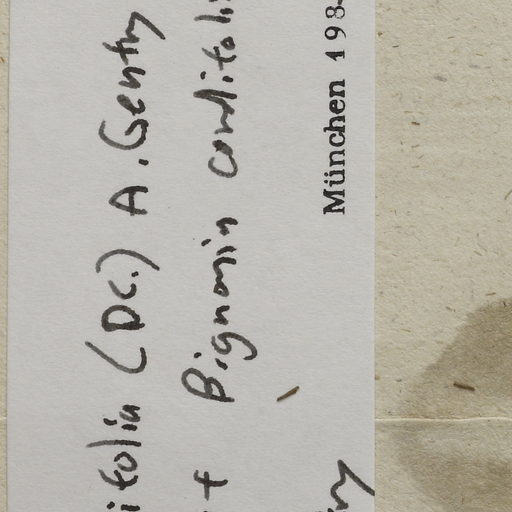 ifolia (DC.) A. Gentry
t Bignonia cordifoli
München 198
ry